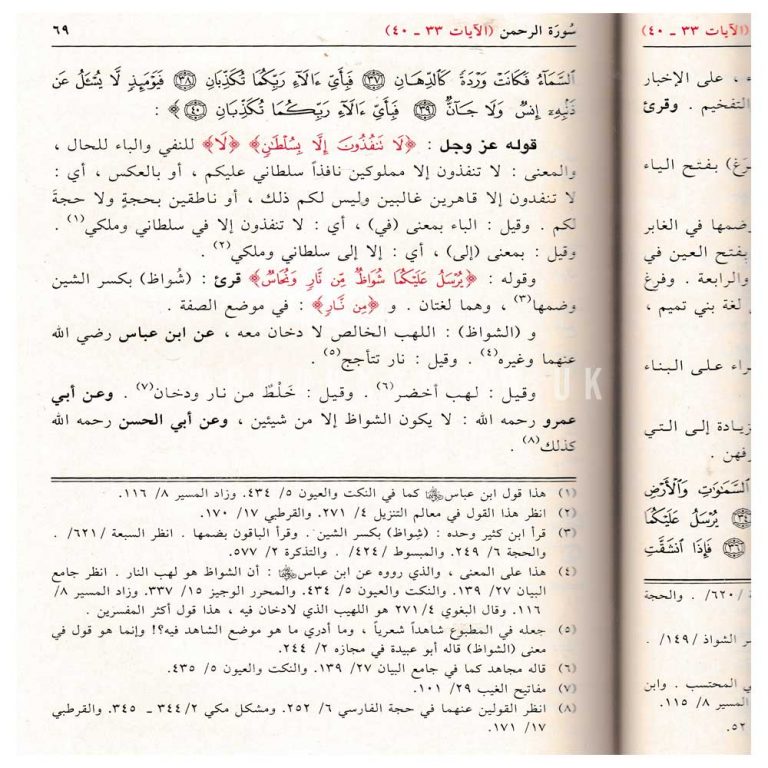 سُورَة الرحمن (الآيات ٣٣ ـ ٤٠)
٦٩
ٱلسَّمَآءُ فَكَانَتْ وَرْدَةً كَٱلدِّهَانِ ﴿٣٧﴾ فَبِأَيِّ ءَالَآءِ رَبِّكُمَا تُكَذِّبَانِ ﴿٣٨﴾ فَيَوْمَئِذٍ لَّا يُسْـَٔلُ عَن
ذَنۢبِهِۦٓ إِنسٌ وَلَا جَآنٌّ ﴿٣٩﴾ فَبِأَيِّ ءَالَآءِ رَبِّكُمَا تُكَذِّبَانِ ﴿٤٠﴾﴾ :
قوله عز وجل : ﴿لَا تَنفُذُونَ إِلَّا بِسُلْطَٰنٍ﴾ ﴿لَا﴾ للنفي والباء للحال ،
والمعنى : لا تنفذون إلا مملوكين نافذاً سلطاني عليكم ، أو بالعكس ، أي :
لا تنفدون إلا قاهرين غالبين وليس لكم ذلك ، أو ناطقين بحجةٍ ولا حجةَ
لكم . وقيل : الباء بمعنى (في) ، أي : لا تنفذون إلا في سلطاني وملكي(١) .
وقيل : بمعنى (إلى) ، أي : إلا إلى سلطاني وملكي(٢) .
وقوله : ﴿يُرْسَلُ عَلَيْكُمَا شُوَاظٌ مِّن نَّارٍ وَنُحَاسٌ﴾ قرئ : (شُواظ) بكسر الشين
وضمها(٣) ، وهما لغتان . و ﴿مِن نَّارٍ﴾ : في موضع الصفة .
و (الشواظ) : اللهب الخالص لا دخان معه ، عن ابن عباس رضي الله
عنهما وغيره(٤) . وقيل : نار تتأجج(٥) .
وقيل : لهب أخضر(٦) . وقيل : خَلْطٌ من نار ودخان(٧) . وعن أبي
عمرو رحمه الله : لا يكون الشواظ إلا من شيئين ، وعن أبي الحسن رحمه الله
كذلك(٨) .
(١) هذا قول ابن عباس ﷺ كما في النكت والعيون ٥/ ٤٣٤. وزاد المسير ٨/ ١١٦.
(٢) انظر هذا القول في معالم التنزيل ٤/ ٢٧١. والقرطبي ١٧/ ١٧٠.
(٣) قرأ ابن كثير وحده : (شِواظ) بكسر الشين . وقرأ الباقون بضمها . انظر السبعة /٦٢١/ .
والحجة ٦/ ٢٤٩. والمبسوط /٤٢٤/ . والتذكرة ٢/ ٥٧٧.
(٤) هذا على المعنى ، والذي رووه عن ابن عباس : أن الشواظ هو لهب النار . انظر جامع
البيان ٢٧/ ١٣٩. والنكت والعيون ٥/ ٤٣٤. والمحرر الوجيز ١٥/ ٣٣٧. وزاد المسير ٨/
١١٦. وقال البغوي ٤/ ٢٧١ هو اللهيب الذي لادخان فيه ، هذا قول أكثر المفسرين .
(٥) جعله في المطبوع شاهداً شعرياً ، وما أدري ما هو موضع الشاهد فيه؟! وإنما هو قول في
معنى (الشواظ) قاله أبو عبيدة في مجازه ٢/ ٢٤٤.
(٦) قاله مجاهد كما في جامع البيان ٢٧/ ١٣٩. والنكت والعيون ٥/ ٤٣٥.
(٧) مفاتيح الغيب ٢٩/ ١٠١.
(٨) انظر القولين عنهما في حجة الفارسي ٦/ ٢٥٢. ومشكل مكي ٢/ ٣٤٤ ـ ٣٤٥. والقرطبي
١٧/ ١٧١.
(الآيات ٣٣ ـ ٤٠)
، على الإخبار
التفخيم . وقرئ
بفتح الياء
وضمها في الغابر
بفتح العين في
والرابعة . وفرغ
لغة بني تميم ،
على البناء
إلى التي
ٱلسَّمَٰوَٰتِ وَٱلْأَرْضِ
﴿٣٤﴾ يُرْسَلُ عَلَيْكُمَا
﴿٣٦﴾ فَإِذَا ٱنشَقَّتِ
/٦٢٠/ . والحجة
الشواذ /١٤٩/ .
المحتسب . وابن
المسير ٨/ ١١٥.
٥٢.
UK